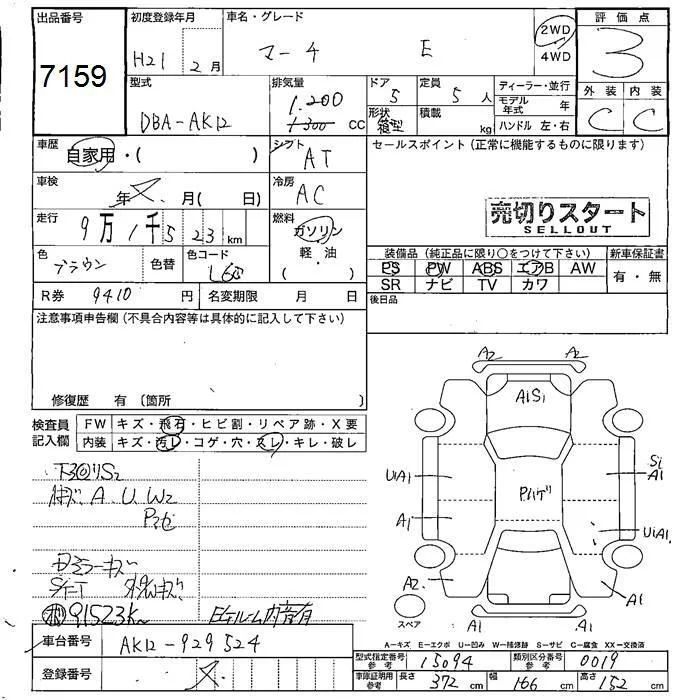 出品番号
7159
初度登録年月
H21 2月
車名・グレード
マーチ E
2WD
4WD
評価点
3
型式
DBA-AK12
排気量
1.200
1300 CC
ドア
5
形状
箱型
定員
5人
積載
kg
ディーラー・並行
モデル年式 年
ハンドル 左・右
外装 内装
C C
車歴
自家用・( )
シフト
AT
セールスポイント(正常に機能するものに限ります)
車検
年 月( 日)
冷房
AC
売切りスタート
SELLOUT
走行
9万1千523km
燃料
ガソリン
軽・油
( )
色
ブラウン
色替
色コード
装備品(純正品に限り○をつけて下さい)
新車保証書
PS PW ABS エアB AW
SR ナビ TV カワ
有・無
R券 9410円
名変期限 月 日
後日品
注意事項申告欄(不具合内容等は具体的に記入して下さい)
修復歴 有(箇所 )
検査員記入欄
FW キズ・飛石・ヒビ割・リペア跡・X要
内装 キズ・汚レ・コゲ・穴・スレ・キレ・破レ
A2 A2
A1S1
UiA1
S1
A1
Pハゲ
A1
UiA1
A2
A1
スペア
A1 A1
A U W2
91523K
車台番号
AK12-929524
登録番号
A-キズ E-エクボ U-凹み W-補修跡 S-サビ C-腐食 XX-交換済
型式指定番号 参考 15094
類別区分番号 参考 0019
車庫証明用 参考 長さ 372cm 幅 166cm 高さ 152cm